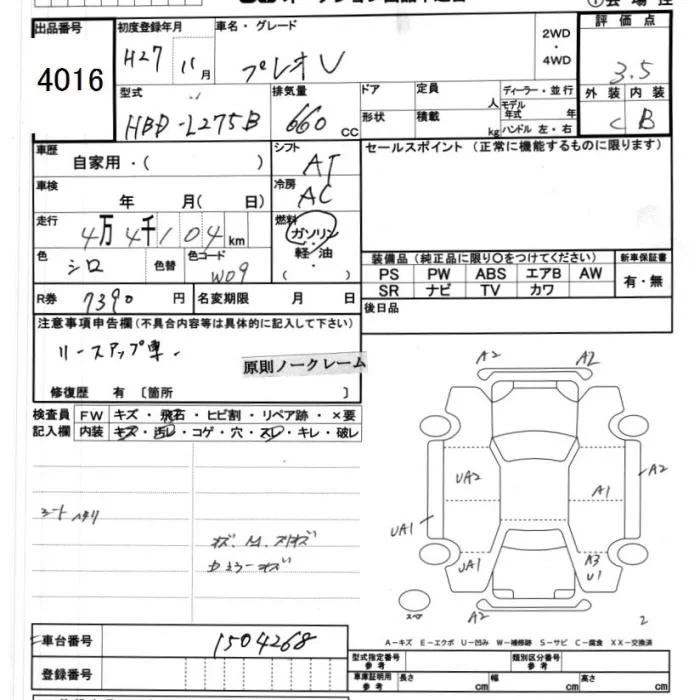 出品番号
4016
初度登録年月
H27 11月
車名・グレード
プレオV
2WD
・
4WD
評価点
3.5
外装 内装
C B
型式
HBD-L275B
排気量
660 CC
ドア
定員
人
形状
積載
kg
ディーラー・並行
モデル
年式 年
ハンドル 左・右
車歴
自家用・( )
シフト
AT
セールスポイント (正常に機能するものに限ります)
車検
年 月( 日)
冷房
AC
走行
4万4千104km
燃料
ガソリン
・
軽・油
( )
色
シロ
色替
色コード
W09
装備品 (純正品に限り〇をつけてください)
PS PW ABS エアB AW
SR ナビ TV カワ
新車保証書
有・無
R券 7390 円
名変期限 月 日
後日品
注意事項申告欄(不具合内容等は具体的に記入して下さい)
リースアップ車.
原則ノークレーム
修復歴 有 〔箇所 〕
検査員
記入欄
FW キズ・飛石・ヒビ割・リペア跡・×要
内装 キズ・汚レ・コゲ・穴・スレ・キレ・破レ
シートヘタリ
A2 A2
UA2 A1 A2
UA1
UA1 A3
U1
スペア
A2
2
A-キズ E-エクボ U-凹み W-補修跡 S-サビ C-腐食 XX-交換済
車台番号
1504268
登録番号
型式指定番号
参考
類別区分番号
参考
車庫証明用
参考
長さ cm
幅 cm
高さ cm